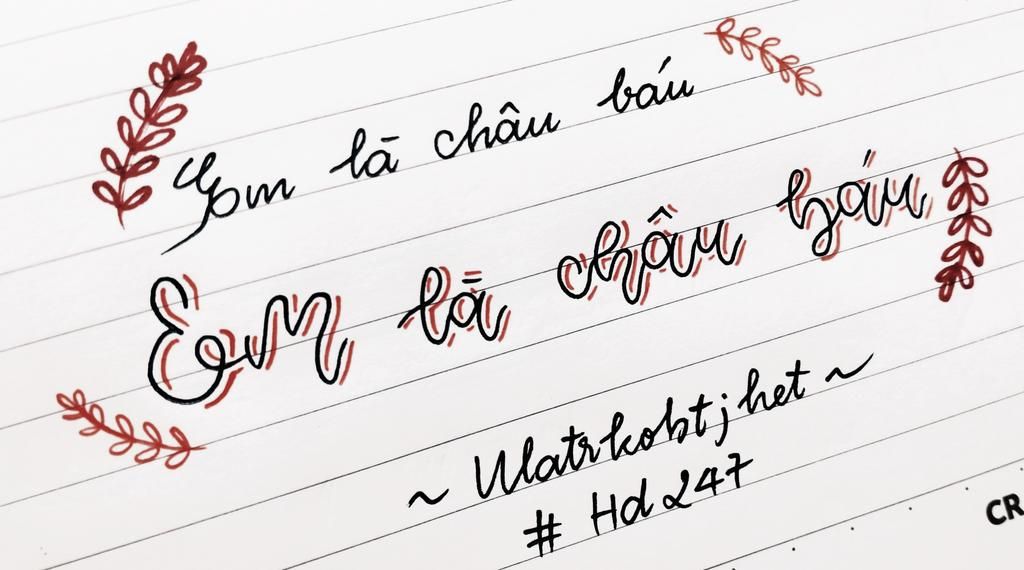 Em là châu báu
Em là châu báu
~ Matrkobtjhet ~
# Hd247
CR